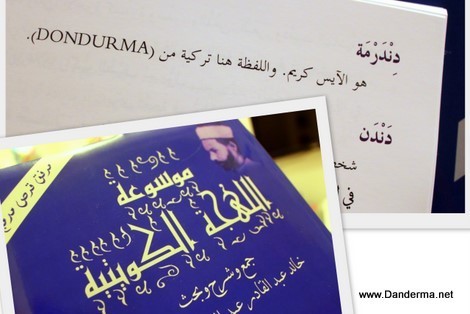 دِنْدَرْمَة
هو الآيس كريم. واللفظة هنا تركية من (DONDURMA).
دَنْدَن
شخص
في ا
مرفق قرص مدمج
موسوعة
اللهجة الكويتية
جمع وشرح وبحث
خالد عبدالقادر عبدا
www.Danderma.net